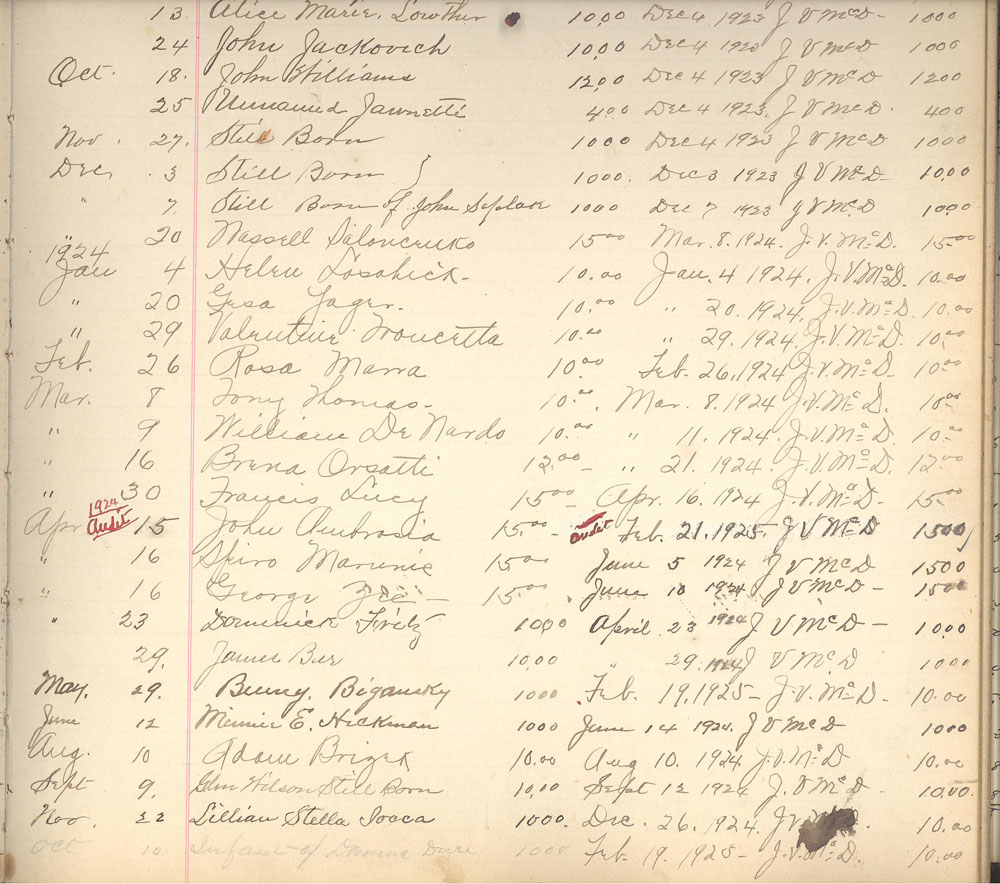 13 Alice Marie Lowther 10.00 Dec 4 1923 J V McD - 1000
24 John Jackovich 10.00 Dec 4 1923 J V McD 1000
Oct. 18. John Williams 12.00 Dec 4 1923 J V McD 1200
25 Unnamed Jannetti 4.00 Dec 4 1923 J V McD. 400
Nov. 27. Still Born 1000 Dec 4 1923 J V McD 1000
Dec, 3 Still Born } 1000. Dec 3 1923 J V McD - 10.00
" 7. Still Born of John 1000 Dec 7 1923 J V McD 1000
" 20 Wassell 15.00 Mar. 8. 1924. J.V.McD. 15.00
1924
Jan 4 Helen 10.00 Jan. 4 1924. J.V.McD. 10.00
" 20 10.00 " 20. 1924, J.V.McD. 10.00
" 29 Valentine 10.00 " 29. 1924, J.V.McD. 10.00
Feb. 26 Rosa Marra 10.00 Feb. 26, 1924 J.V.McD. 10.00
Mar. 8 Tony Thomas. 10.00. Mar. 8. 1924. J.V.McD. 10.00
" 9 William De Nardo 10.00 " 11. 1924. J.V.McD. 10.00
" 16 Orsatti 12.00 - " 21. 1924. J.V.McD. 12.00
" 30 Francis Lucy 15.00 - Apr. 16. 1924 J.V.McD. 15.00
1924 Audit
Apr 15 John Ambrosia 15.00 - audit Feb. 21. 1925. J V McD 1500
" 16 Spiro 15.00 June 5 1924 J V McD 1500
" 16 George 15.00 June 10 1924 J V McD - 1500
" 23 Dominick Fritz 1000 April 23 1924 J V McD - 1000
29. James 10.00 " 29. 1924 J V McD 1000
May. 29. Bigansky 1000 Feb. 19. 1925 - J.V.McD - 10.00
June 12 Minnie E. Hickman 1000 June 14 1924. J V McD 1000
Aug. 10 Adam 10.00 Aug 10. 1924 J.V.McD 10.00
Sept 9. Glen Wilson Still Born 10.00 Sept 12 1924 J. V McD - 10.00.
Nov. 22 Lillian Stella 1000. Dec. 26. 1924. J.V. 10.00
Oct 10 Infant of 1000 Feb. 19. 1925 - J.V.McD. 10.00